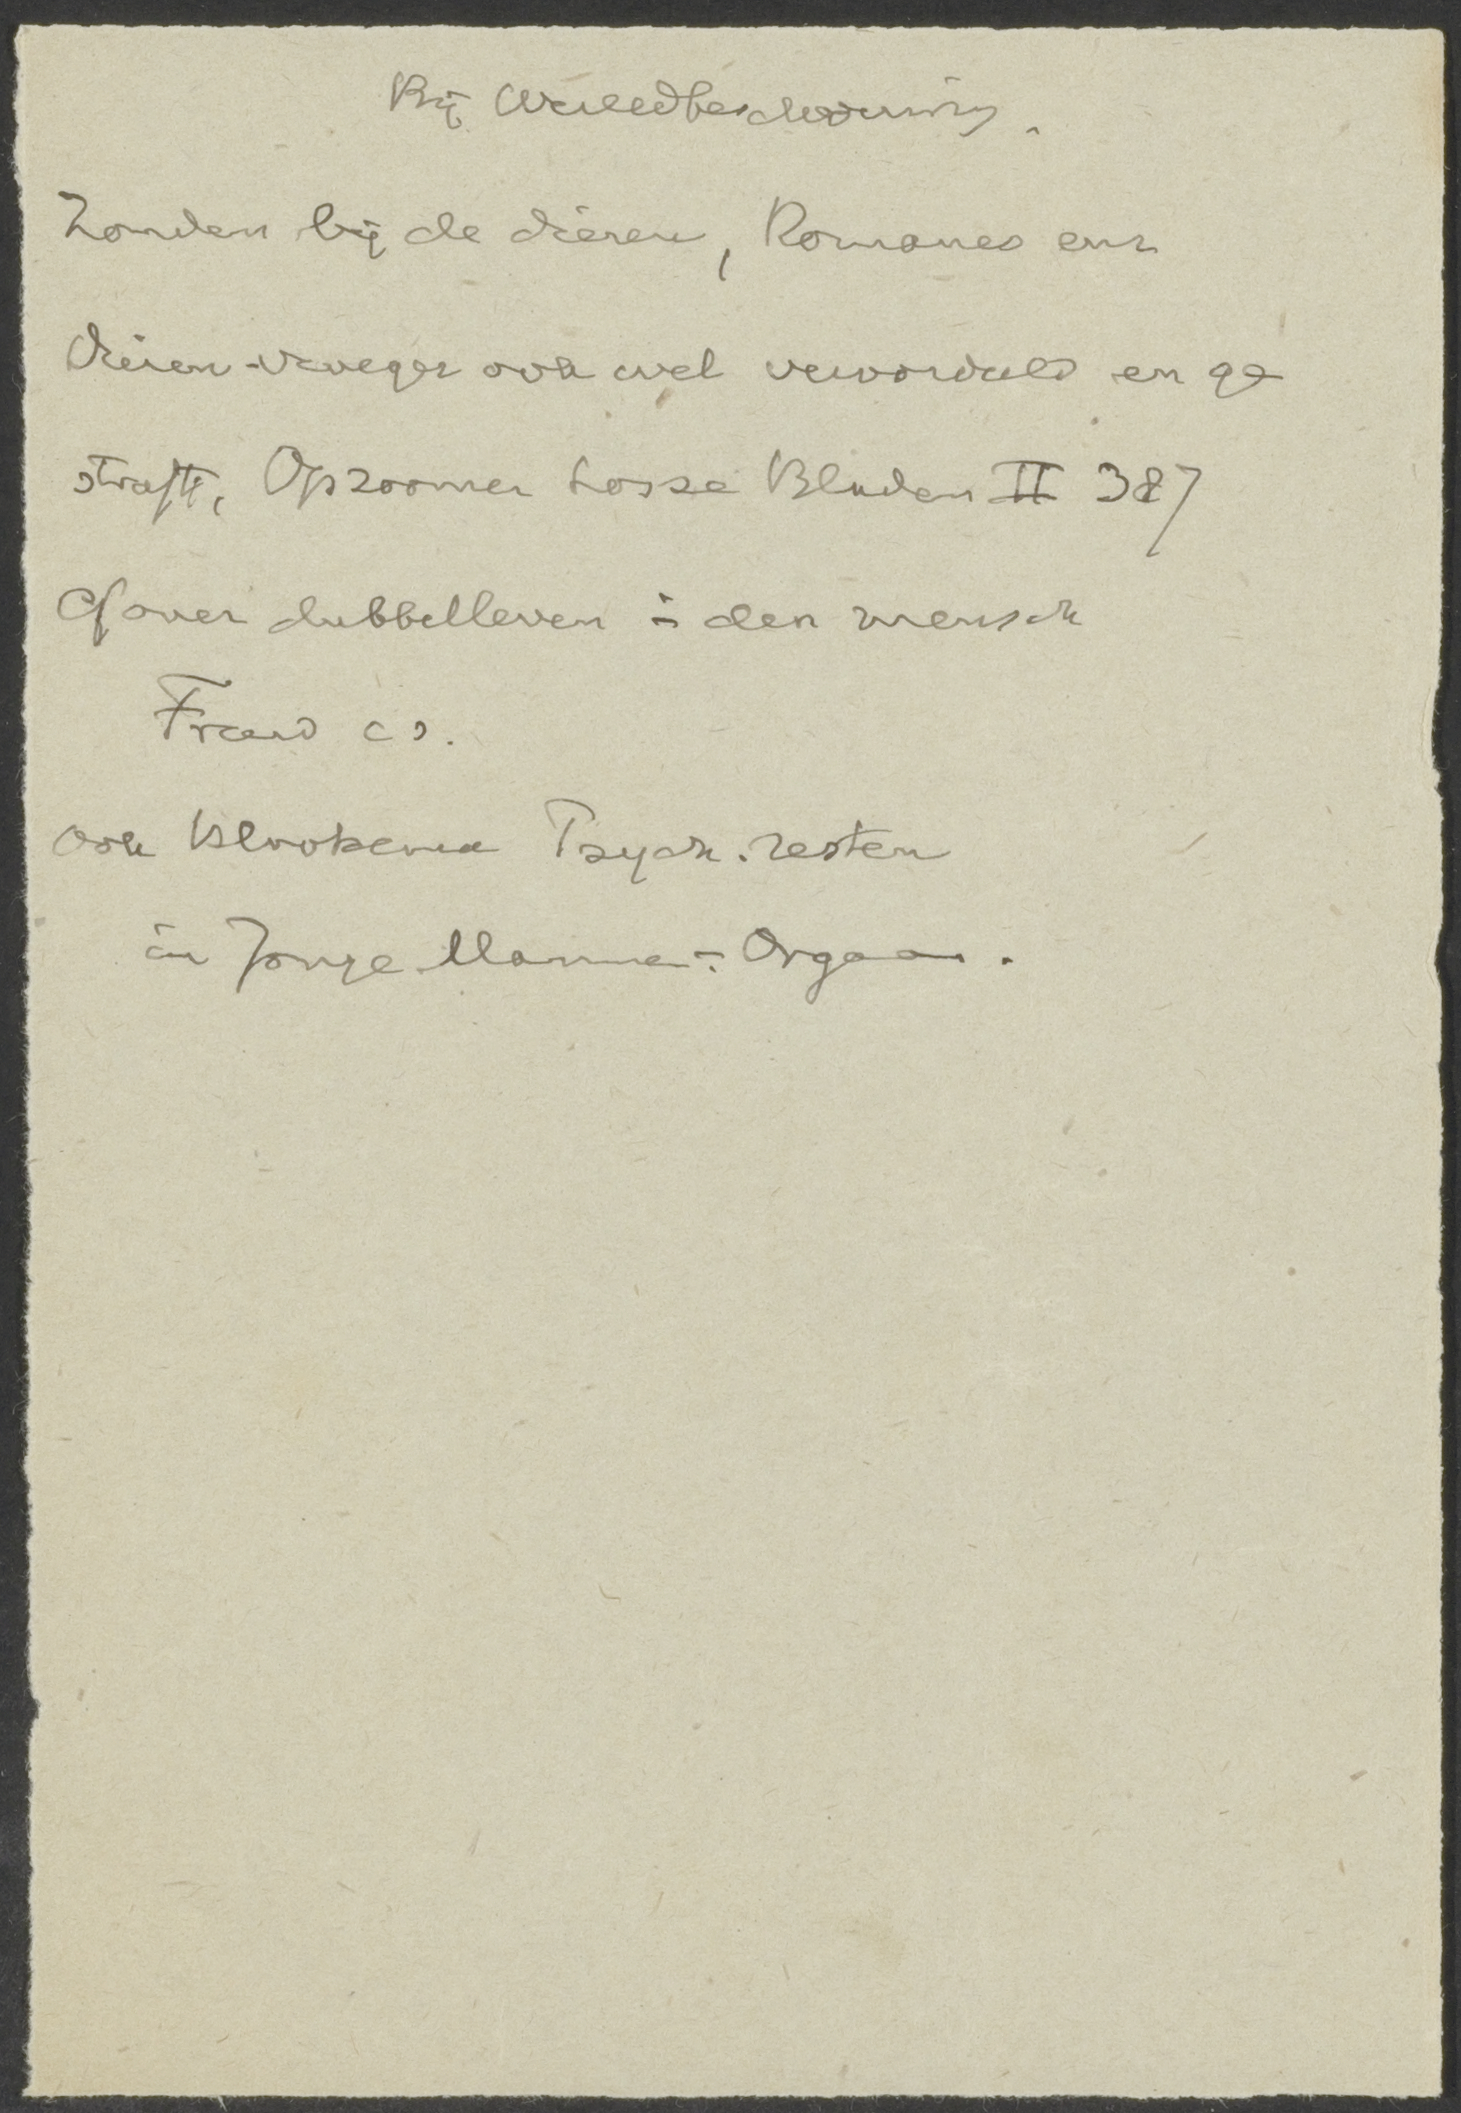 Bij Wereldbeschouwing.
Zonden bij de dieren, Romanes enz
dieren - vroeger ook wel veroordeeld en ge
straft, Opzoomer Losse Bladen II 387
Cf over dubbelleven in den mensch
Freud cs.
ook Psych. resten
in Jonge Mannen-Orgaan.